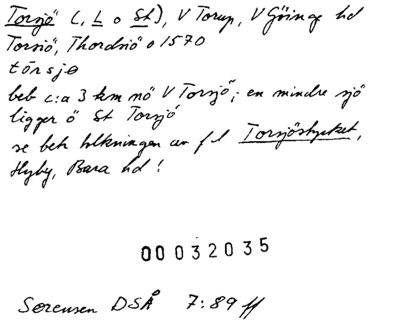 Torsjö (, L o St), V Torup, V Göinge hd
Torsiö, Thordsiö o 1570
tórsjø
beb c:a 3 km nö V Torsjö; en mindre sjö
ligger ö St Torsjö
se beh av f l Torsjöstycket,
Hyby, Bara hd!
00032035
Sørensen DSÅ 7:89 ff